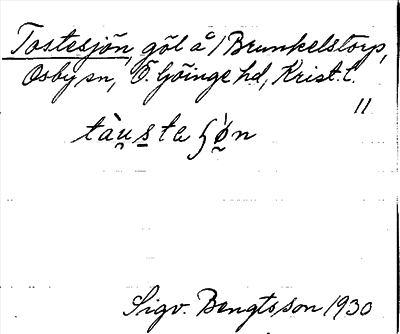 Tostesjön, göl å 1 Brunkelstorp,
Osby sn, Ö. Göinge hd, Krist. l.
11
tàu̯s̲ta ʃö̀n
Sigv. Bengtsson 1930